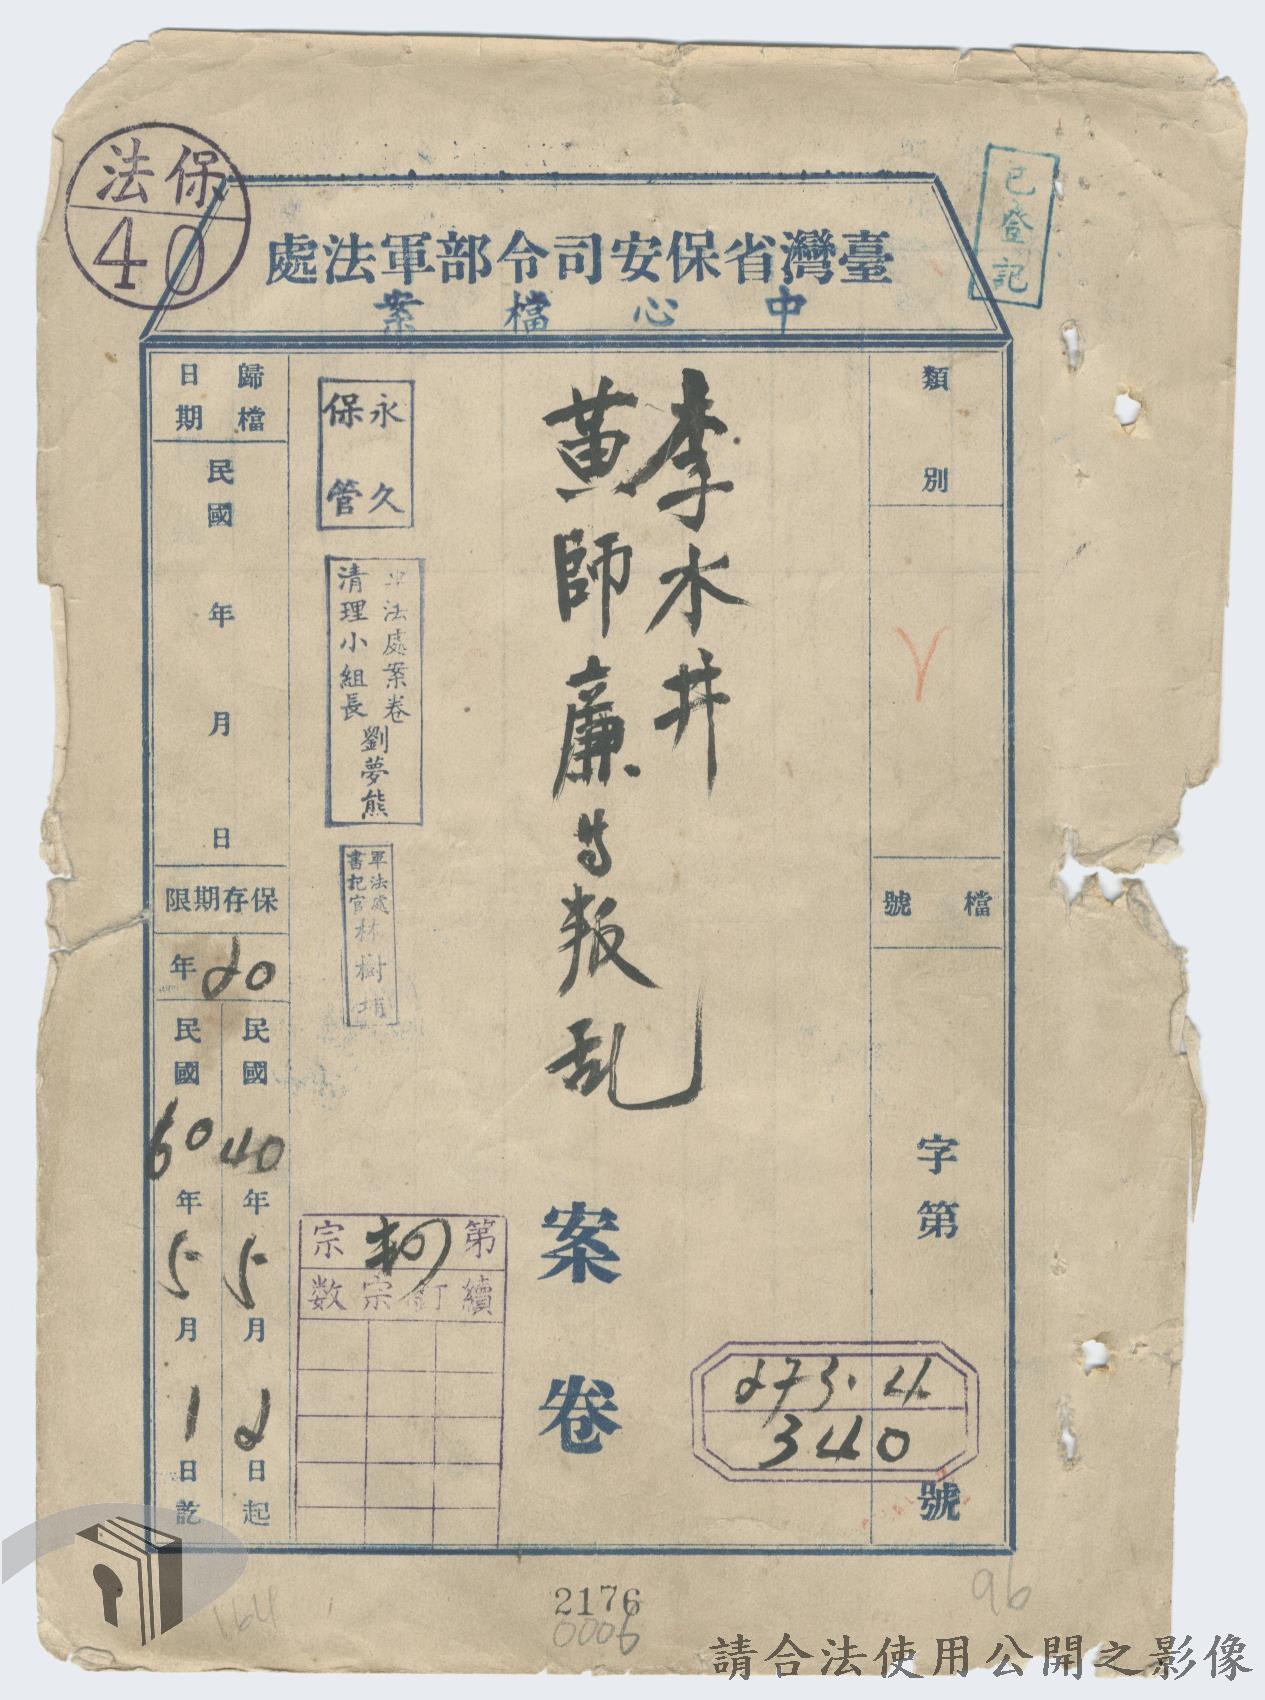 保法
40
已登記
臺灣省保安司令部軍法處
中心檔案
類別
檔號
字第
號
李水井
黃師廉等叛乱
案卷
273.4
340
永久
保管
軍法處案卷
清理小組長
劉夢熊
軍法處
書記官
林樹
第
宗
續訂宗数
歸檔
日期
民國
年
月
日
保存期限
20年
民國40年5月2日起
民國60年5月1日訖
2176
0006
164
96
請合法使用公開之影像